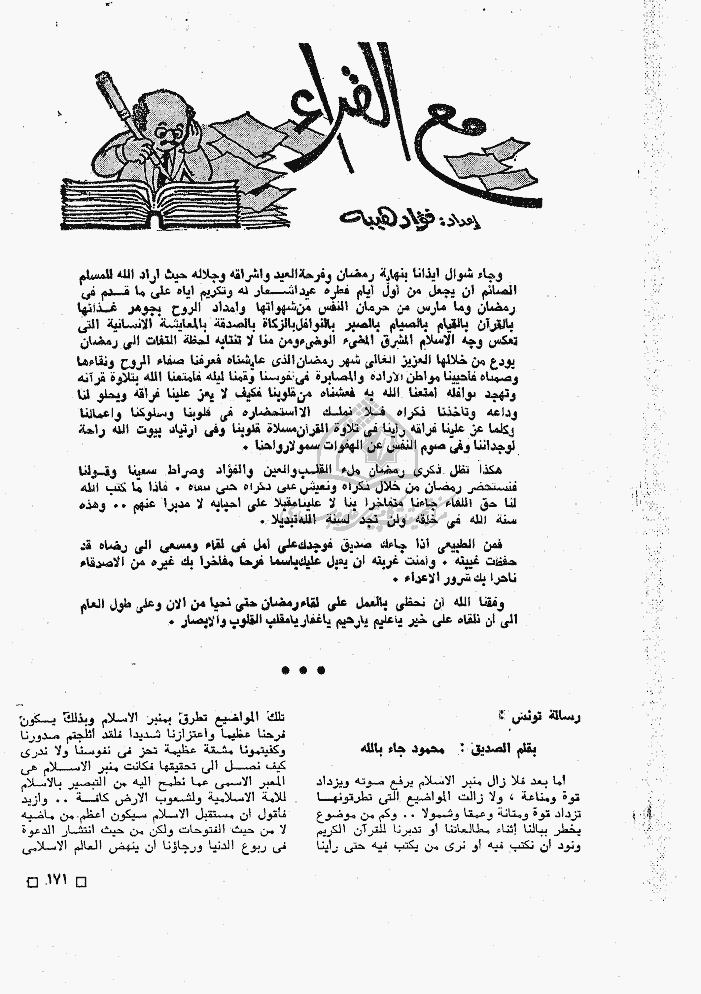 مع القراء
إعداد: فؤاد هيبه
وجاء شوال ايذانا بنهاية رمضان وفرحة العيد واشراقه وجلاله حيث اراد الله للمسلم
الصائم أن يجعل من أول أيام فطره عيدا شعار له وتكريم اياه على ما قدم فى
رمضان وما مارس من حرمان النفس من شهواتها وامداد الروح بجوهر غذائها
بالقرآن بالقيام بالصيام بالصبر بالنوافل بالزكاة بالصدقة بالمعايشة الانسانية التى
تعكس وجه الاسلام المشرق المضىء الوضىء ومن منا لا تنتابه لحظة التفات الى رمضان
يودع من خلالها العزيز الغالى شهر رمضان الذى عايشناه فعرفنا صفاء الروح ونقاءها
وصمناه فأحيينا مواطن الارادة والمصابرة فى نفوسنا وقمنا ليله فامتعنا الله بتلاوة قرآنه
وتهجد نوافله أمتعنا الله به فعشناه من قلوبنا فكيف لا يعز علينا فراقه ويحلو لنا
وداعه وتأخذنا ذكراه فلا نملك الا استحضاره فى قلوبنا وسلوكنا واعمالنا
وكلما عز علينا فراقه رأينا فى تلاوة القرآن مسلاة قلوبنا وفى ارتياد بيوت الله راحة
لوجداننا وفى صوم النفس عن الهفوات سمو لارواحنا .
هكذا تظل ذكرى رمضان ملء القلب والعين والفؤاد وصراط سعينا وقولنا
فنستحضر رمضان من خلال ذكراه ونعيش على ذكراه حتى نلقاه . فاذا ما كتب الله
لنا حق اللقاء جاءنا متفاخرا بنا لا علينا مقبلا على أحبابه لا مدبرا عنهم .. وهذه
سنة الله فى خلقه ولن تجد لسنة الله تبديلا .
فمن الطبيعى اذا جاءك صديق فوجدك على أمل فى لقاء ومسعى الى رضاه قد
حفظت غيبته . وأمنت غربته أن يقبل عليك باسما فرحا مفاخرا بك غيره من الاصدقاء
ناحرا بك شرور الاعداء .
وفقنا الله أن نحظى بالعمل على لقاء رمضان حتى نحيا من الان وعلى طول العام
الى أن نلقاه على خير يا عليم يا رحيم يا غفار يا مقلب القلوب والابصار .
● ● ●
رسالة تونس :
بقلم الصديق : محمود جاء بالله
أما بعد فلا زال منبر الاسلام يرفع صوته ويزداد
قوة ومناعة ، ولا زالت المواضيع التى تطرقونها
تزداد قوة ومتانة وعمقا وشمولا .. وكم من موضوع
يخطر ببالنا أثناء مطالعاتنا أو تدبرنا للقرآن الكريم
ونود أن نكتب فيه أو نرى من يكتب فيه حتى رأينا
تلك المواضيع تطرق بمنبر الاسلام وبذلك يسكون
فرحنا عظيما واعتزازنا شديدا فلقد أثلجتم صدورنا
وكفيتمونا مشقة عظيمة تحز فى نفوسنا ولا ندرى
كيف نصل الى تحقيقها فكانت منبر الاسلام هى
المعبر الاسمى عما نطمح اليه من التبصير بالاسلام
للامة الاسلامية ولشعوب الارض كافة .. وأزيد
فأقول أن مستقبل الاسلام سيكون أعظم من ماضيه
لا من حيث الفتوحات ولكن من حيث انتشار الدعوة
فى ربوع الدنيا ورجاؤنا أن ينهض العالم الاسلامى
□ ١٧١ □